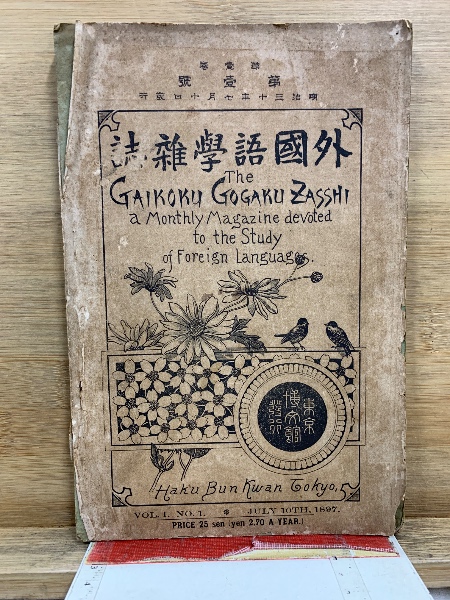 第壹卷
第壹號
明治三十年七月十日發行
外國語學雜誌
The
GAIKOKU GOGAKU ZASSHI
a Monthly Magazine devoted
to the Study
of Foreign Languages.
東京
博文館
發行
Haku Bun Kwan Tokyo,
VOL. I. NO. 1. * JULY 10TH, 1897.
PRICE 25 sen (yen 2.70 A YEAR.)